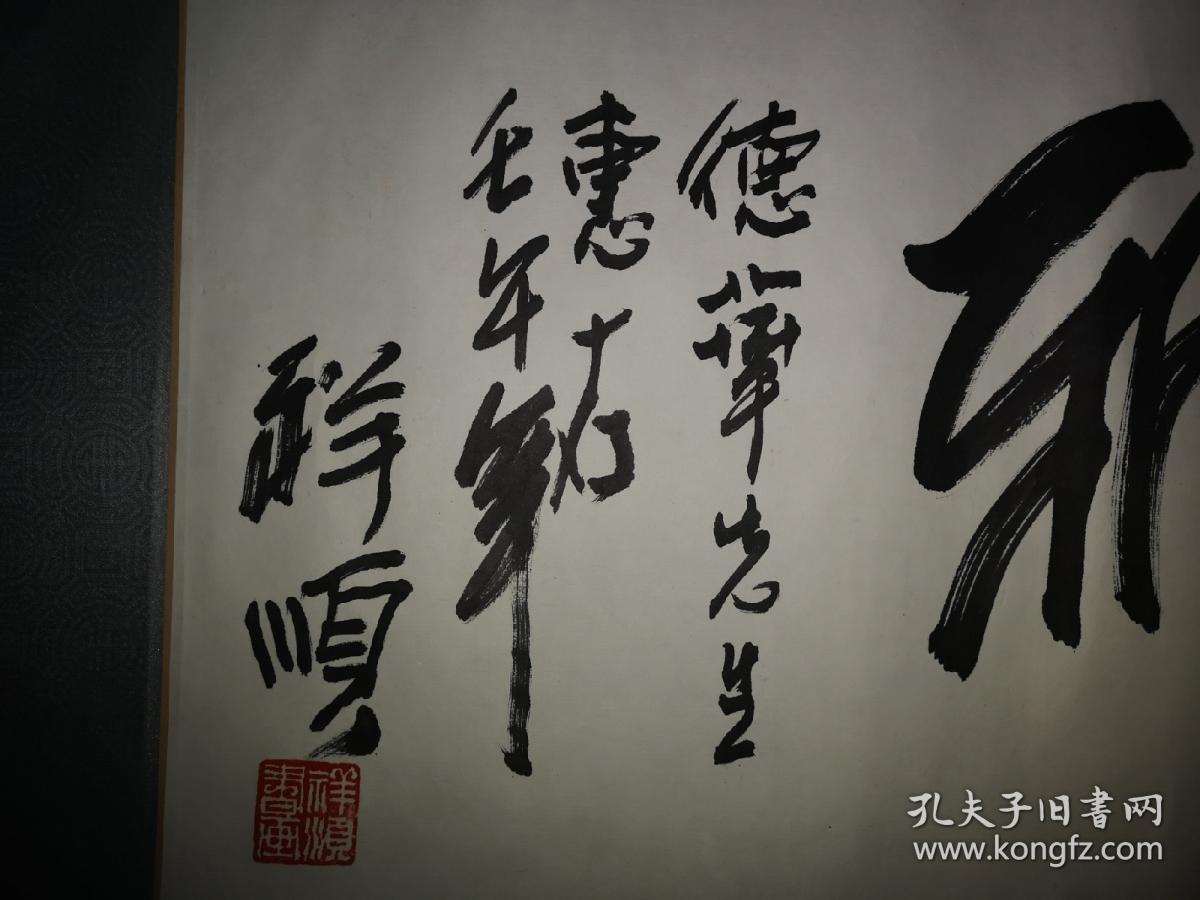 德華先生
惠存
壬午年
祥順
祥順書画
孔夫子旧书网
www.kongfz.com